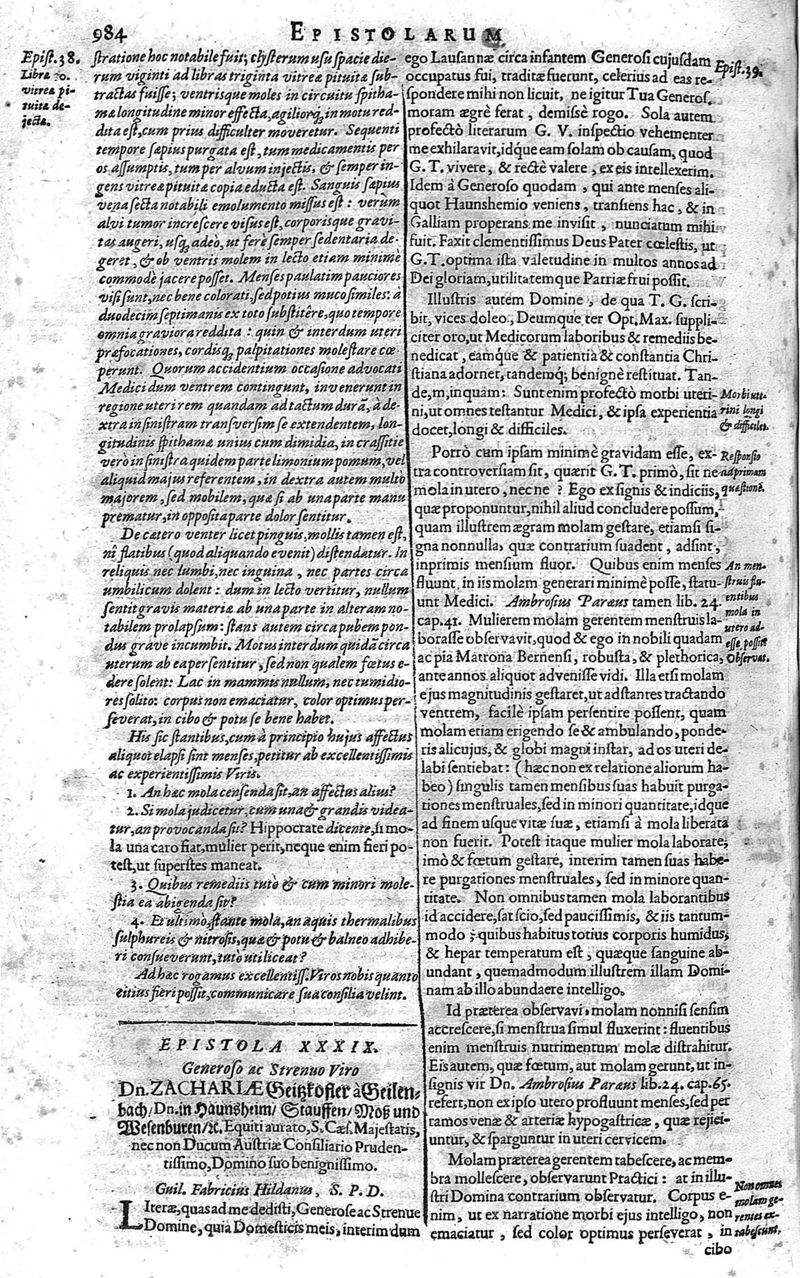 984
EPISTOLARUM
Epist. 38.
Libræ 30.
vitreæ pi-
tuitæ de-
jectæ.
stratione hoc notabile fuit; clysterum usu spacie die-
rum viginti ad libras triginta vitreæ pituitæ sub-
tractas fuisse; ventrisque moles in circuitu spitha-
mæ longitudine minor effecta, agiliorq́, in motu red-
dita est, cum prius difficulter moveretur. Sequenti
tempore sæpius purgata est, tum medicamentis per
os assumptis, tum per alvum injectis, & semper in-
gens vitreæ pituitæ copia educta est. Sanguis sæpius
vena secta notabili emolumento missus est: verum
alvi tumor increscere visus est, corporisque gravi-
tas augeri, usq́, adeò, ut ferè semper sedentaria de-
geret, & ob ventris molem in lecto etiam minimè
commodè jacere posset. Menses paulatim pauciores
visi sunt, nec bene colorati, sed potius muco similes: à
duodecim septimanis ex toto substitêre, quo tempore
omnia graviora reddita: quin & interdum uteri
præfocationes, cordisq́, palpitationes molestare cœ-
perunt. Quorum accidentium occasione advocati
Medici dum ventrem contingunt, invenerunt in
regione uteri rem quandam ad tactum durã, à de-
xtra in sinistram transversim se extendentem, lon-
gitudinis spithamæ unius cum dimidia, in crassitie
verò in sinistra quidem parte limonium pomum, vel
aliquid majus referentem, in dextra autem multo
majorem, sed mobilem, quæ si ab una parte manu
prematur, in opposita parte dolor sentitur.
De cætero venter licet pinguis, mollis tamen est,
nî flatibus (quod aliquando evenit) distendatur. In
reliquis nec lumbi, nec inguina, nec partes circa
umbilicum dolent: dum in lecto vertitur, nullum
sentit gravis materiæ ab una parte in alteram no-
tabilem prolapsum: stans autem circa pubem pon-
dus grave incumbit. Motus interdum quidã circa
uterum ab ea persentitur, sed non qualem fœtus e-
dere solent: Lac in mammis nullum, nec tumidio-
res solito: corpus non emaciatur, color optimus per-
severat, in cibo & potu se bene habet.
His sic stantibus, cum à principio hujus affectus
aliquot elapsi sint menses, petitur ab excellentissimis
ac experientissimis Viris.
1. An hæc mola censenda sit, an affectus alius?
2. Si mola judicetur, cum una & grandis videa-
tur, an provocanda sit? Hippocrate dicente, si mo-
la una caro fiat, mulier perit, neque enim fieri po-
test, ut superstes maneat.
3. Quibus remediis tutò & cum minori mole-
stia ea abigenda sit?
4. Et ultimò, stante mola, an aquis thermalibus
sulphureis & nitrosis, quæ & potu & balneo adhibe-
ri consueverunt, tutò uti liceat?
Ad hæc rogamus excellentiss. Viros nobis quanto
citius fieri possit, communicare sua consilia velint.
EPISTOLA XXXIX.
Generoso ac Strenuo Viro
Dn. ZACHARIÆ Geitzkofler à Geilen-
bach/ Dn. in Haunsheim/ Stauffen/ Moß und
Wesenburen/ &c. Equiti aurato, S. Cæs. Majestatis,
nec non Ducum Austriæ Consiliario Pruden-
tissimo, Domino suo benignissimo.
Guil. Fabricius Hildanus, S. P. D.
Literæ, quas ad me dedisti, Generose ac Strenue
Domine, quia Domesticis meis, interim dum
ego Lausannæ circa infantem Generosi cujusdam
occupatus fui, traditæ fuerunt, celerius ad eas re-
spondere mihi non licuit, ne igitur Tua Generos.
moram ægrè ferat, demissè rogo. Sola autem
profectò literarum G. V. inspectio vehementer
me exhilaravit, idque eam solam ob causam, quod
G. T. vivere, & rectè valere, ex eis intellexerim.
Idem à Generoso quodam, qui ante menses ali-
quot Haunshemio veniens, transiens hac, & in
Galliam properans me invisit, nunciatum mihi
fuit. Faxit clementissimus Deus Pater cœlestis, ut
G. T. optima ista valetudine in multos annos ad
Dei gloriam, utilitatemque Patriæ frui possit.
Illustris autem Domine, de qua T. G. scri-
bit, vices doleo, Deumque ter Opt. Max. suppli-
citer oro, ut Medicorum laboribus & remediis be-
nedicat, eamque & patientia & constantia Chri-
stiana adornet, tandemq́; benignè restituat. Tan-
dem, inquam: Sunt enim profectò morbi uteri-
ni, ut omnes testantur Medici, & ipsa experientia
docet, longi & difficiles.
Porrò cum ipsam minimè gravidam esse, ex-
tra controversiam sit, quærit G. T. primò, sit ne
mola in utero, nec ne? Ego ex signis & indiciis,
quæ proponuntur, nihil aliud concludere possum,
quam illustrem ægram molam gestare, etiamsi si-
gna nonnulla, quæ contrarium suadent, adsint,
inprimis mensium fluor. Quibus enim menses
fluunt, in iis molam generari minimè posse, statu-
unt Medici. Ambrosius Paræus tamen lib. 24.
cap. 41. Mulierem molam gerentem menstruis la-
borasse observavit, quod & ego in nobili quadam
ac pia Matrona Bernensi, robusta, & plethorica,
ante annos aliquot advenisse vidi. Illa etsi molam
ejus magnitudinis gestaret, ut adstantes tractando
ventrem, facilè ipsam persentire possent, quam
molam etiam erigendo se & ambulando, ponde-
ris alicujus, & globi magni instar, ad os uteri de-
labi sentiebat: (hæc non ex relatione aliorum ha-
beo) singulis tamen mensibus suas habuit purga-
tiones menstruales, sed in minori quantitate, idque
ad finem usque vitæ suæ, etiamsi à mola liberata
non fuerit. Potest itaque mulier mola laborate,
imò & fœtum gestare, interim tamen suas habe-
re purgationes menstruales, sed in minore quan-
titate. Non omnibus tamen mola laborantibus
id accidere, sat scio, sed paucissimis, & iis tantum-
modo; quibus habitus totius corporis humidus,
& hepar temperatum est, quæque sanguine ab-
undant, quemadmodum illustrem illam Domi-
nam ab illo abundaere intelligo.
Id præterea observavi, molam nonnisi sensim
accrescere, si menstrua simul fluxerint: fluentibus
enim menstruis nutrimentum molæ distrahitur.
Eis autem, quæ fœtum, aut molam gerunt, ut in-
signis vir Dn. Ambrosius Paræus lib. 24. cap. 65.
refert, non ex ipso utero profluunt menses, sed per
ramos venæ & arteriæ hypogastricæ, quæ rejici-
untur, & sparguntur in uteri cervicem.
Molam præterea gerentem tabescere, ac mem-
bra mollescere, observarunt Practici: at in illu-
stri Domina contrarium observatur. Corpus e-
nim, ut ex narratione morbi ejus intelligo, non
emaciatur, sed color optimus perseverat, in
cibo
Epist. 39.
Morbi ute-
rini longi
& difficiles.
Responsio
ad primam
quæstionē.
An men-
struis flu-
entibus
mola in
utero ad-
esse possit?
Observat.
Non omnes
molam ge-
rentes ex-
tabescunt.